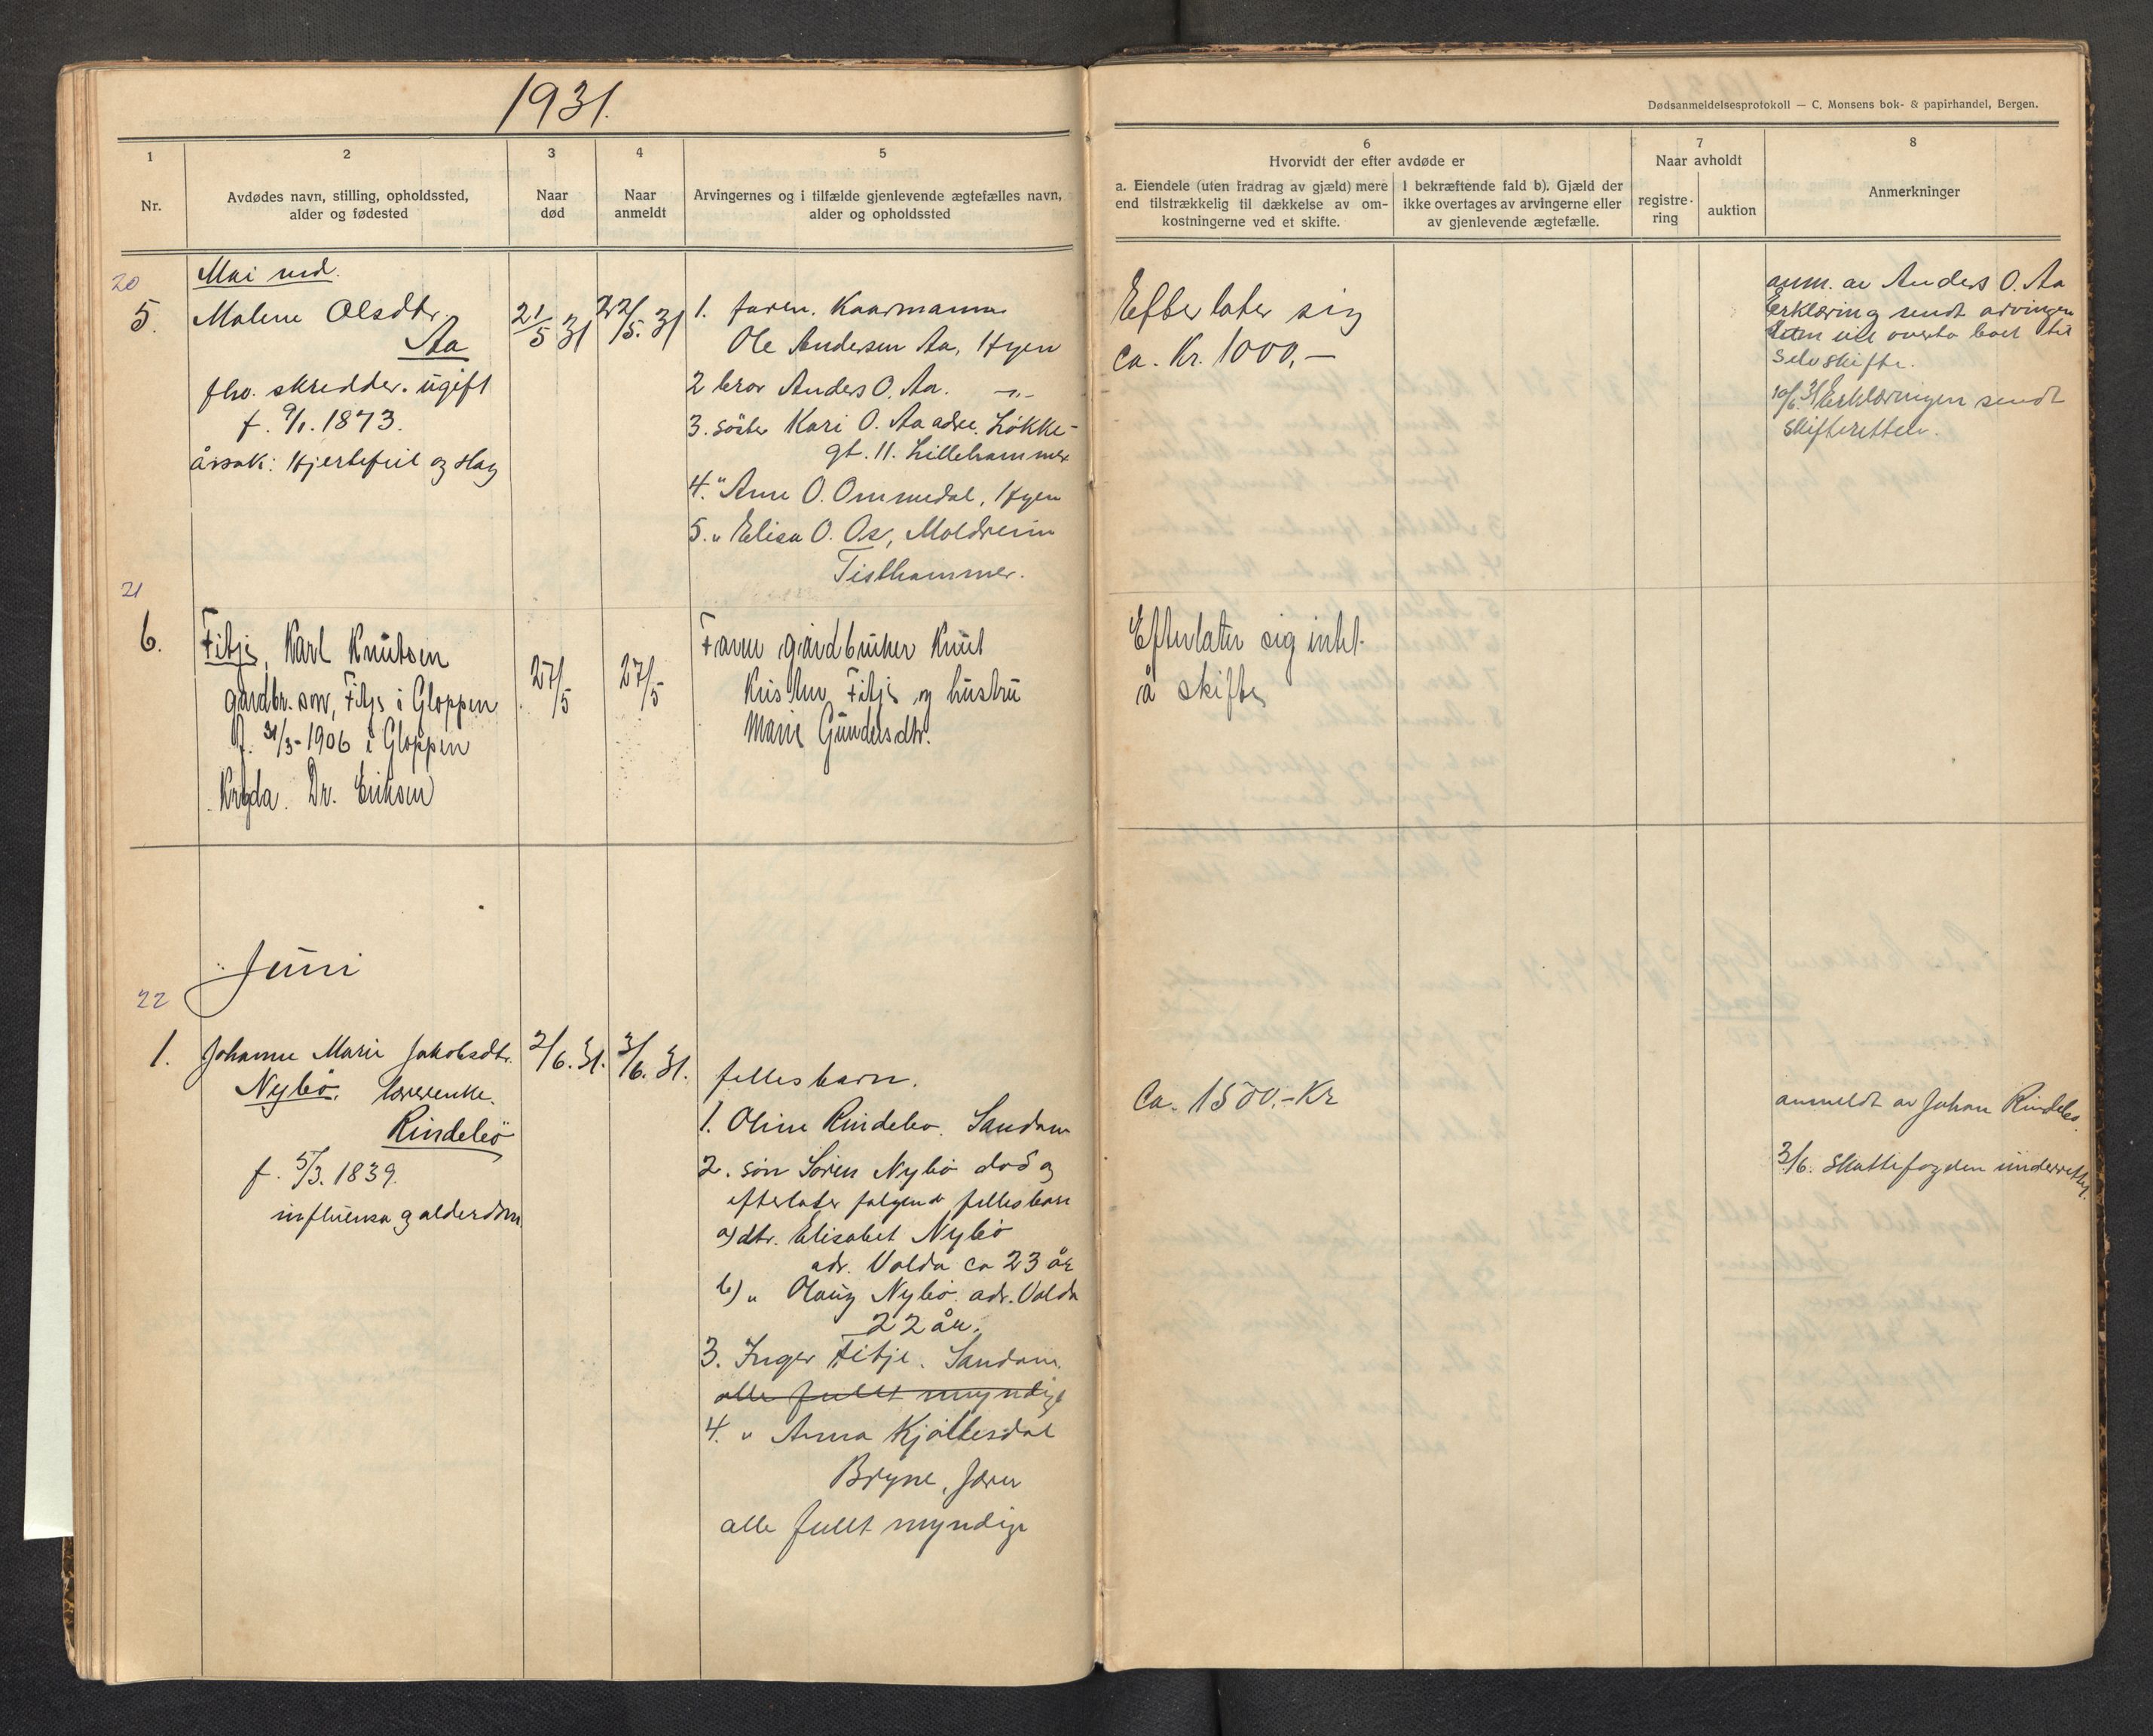 1931.
Dødsanmeldelsesprotokoll — C. Monsens bok- & papirhandel, Bergen.
1
2
3
4
5
6
7
8
Nr.
Avdødes navn, stilling, opholdssted,
alder og fødested
Naar
død
Naar
anmeldt
Arvingernes og i tilfælde gjenlevende ægtefælles navn,
alder og opholdssted
Hvorvidt der efter avdøde er
a. Eiendele (uten fradrag av gjæld) mere
end tilstrækkelig til dækkelse av om-
kostningerne ved et skifte.
I bekræftende fald b). Gjæld der
ikke overtages av arvingerne eller
av gjenlevende ægtefælle.
Naar avholdt
registre-
ring
auktion
Anmerkninger
20
5.
Mai md.
Malene Olsdtr.
Aa
fhv. skredder. ugift
f. 9/1. 1873.
årsak: Hjertefeil og slag
21/5 31
22/5. 31
1. faren. Kaarmann
Ole Andersen Aa, Hyen
2 bror Anders O. Aa. -"-
3. søster Kari O. Aa adr. Løkke-
gt. 11. Lillehammer
4. " Anne O. Ommedal, Hyen
5. " Elisa O. Os, Moldreim
Tisthammer.
Efterlater sig
ca. Kr. 1000,—
anm. av Anders O. Aa
Erklæring sendt arvingen
som vil overta boet til
selvskifte.
10/6. 31 Erklæringen sendt
skifteretten.
21
6.
Fitje, Karl Knutsen
gardbr. søn, Fitje i Gloppen
f. 31/3-1906 i Gloppen
Dr. Eriksen
27/5
27/5
Faren gårdbruker Knut
Kristen Fitje og hustru
Marie Gundersdtr.
Efterlater sig intet
å skifte
Juni
22
1.
Johanne Marie Jakobsdtr.
Nybø. lærerenke.
Rindebø
f. 5/3. 1839.
influensa og alderdom
2/6. 31.
3/6. 31.
fellesbarn.
1. Oline Rindebø. Sandane
2. søn Søren Nybø død og
efterlater følgende fellesbarn
a) dtr. Elisabet Nybø
adr. Volda ca 23 år
b) " Olaug Nybø. adr. Volda
22 år.
3. Inger Fitje. Sandane.
alle fullt myndige
4. " Anna Kjøllesdal
Bryne, Jæren
alle fullt myndige
Ca. 1500.- Kr
anmeldt av Johan Rindebø.
3/6. Skattefogden underrettet.